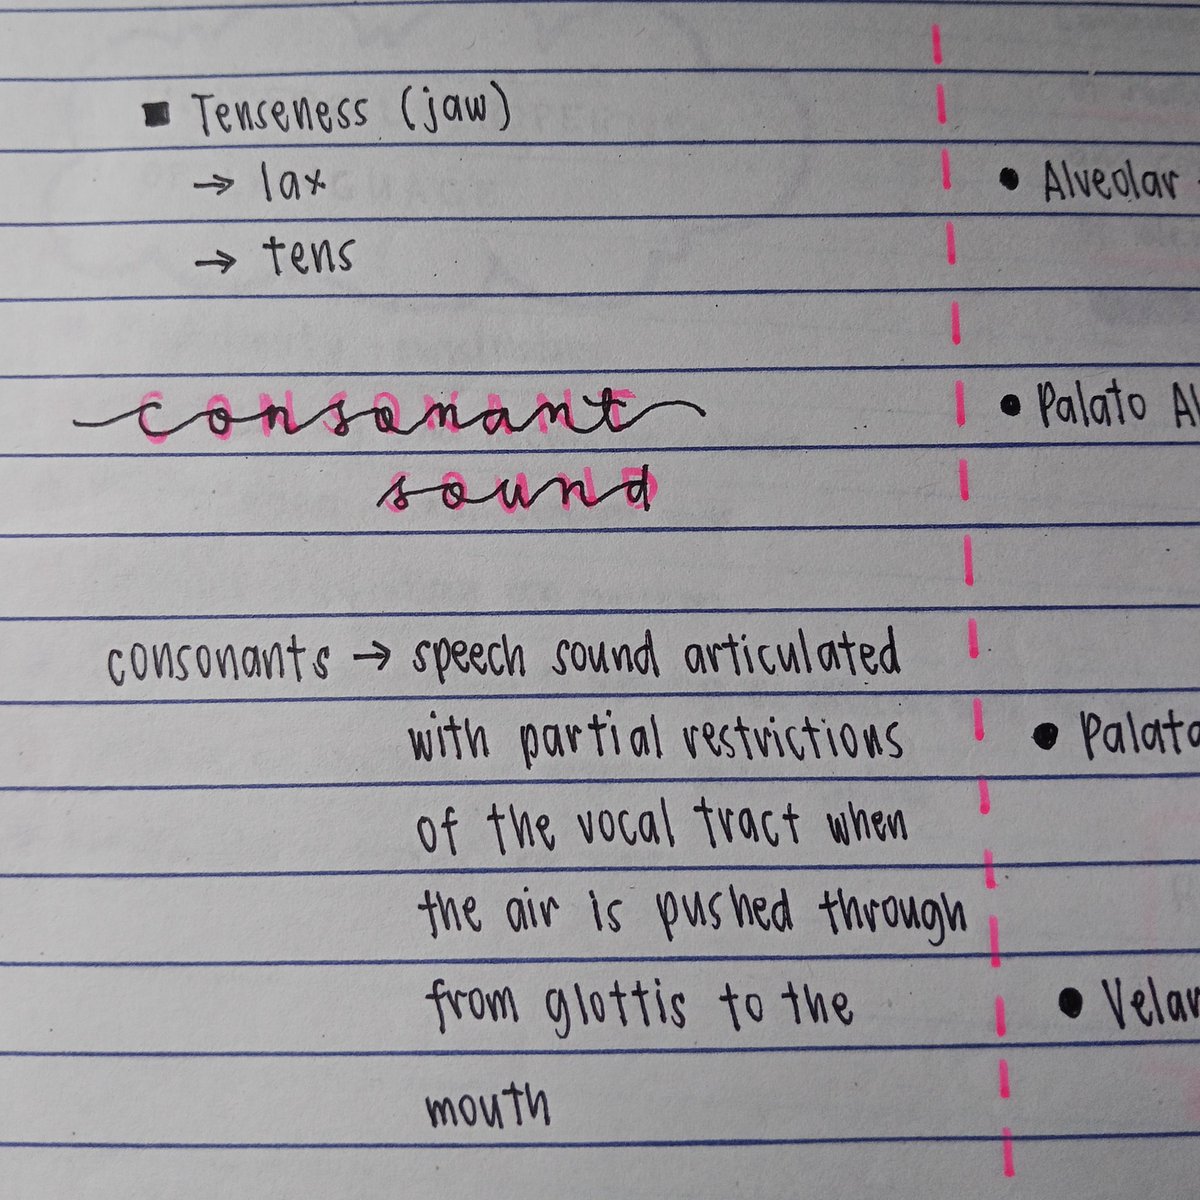 ■ Tenseness (jaw)
→ lax
→ tens
consonant
sound
consonants → speech sound articulated
with partial restrictions
of the vocal tract when
the air is pushed through
from glottis to the
mouth
• Alveolar
• Palato Al
• Palato
• Velar